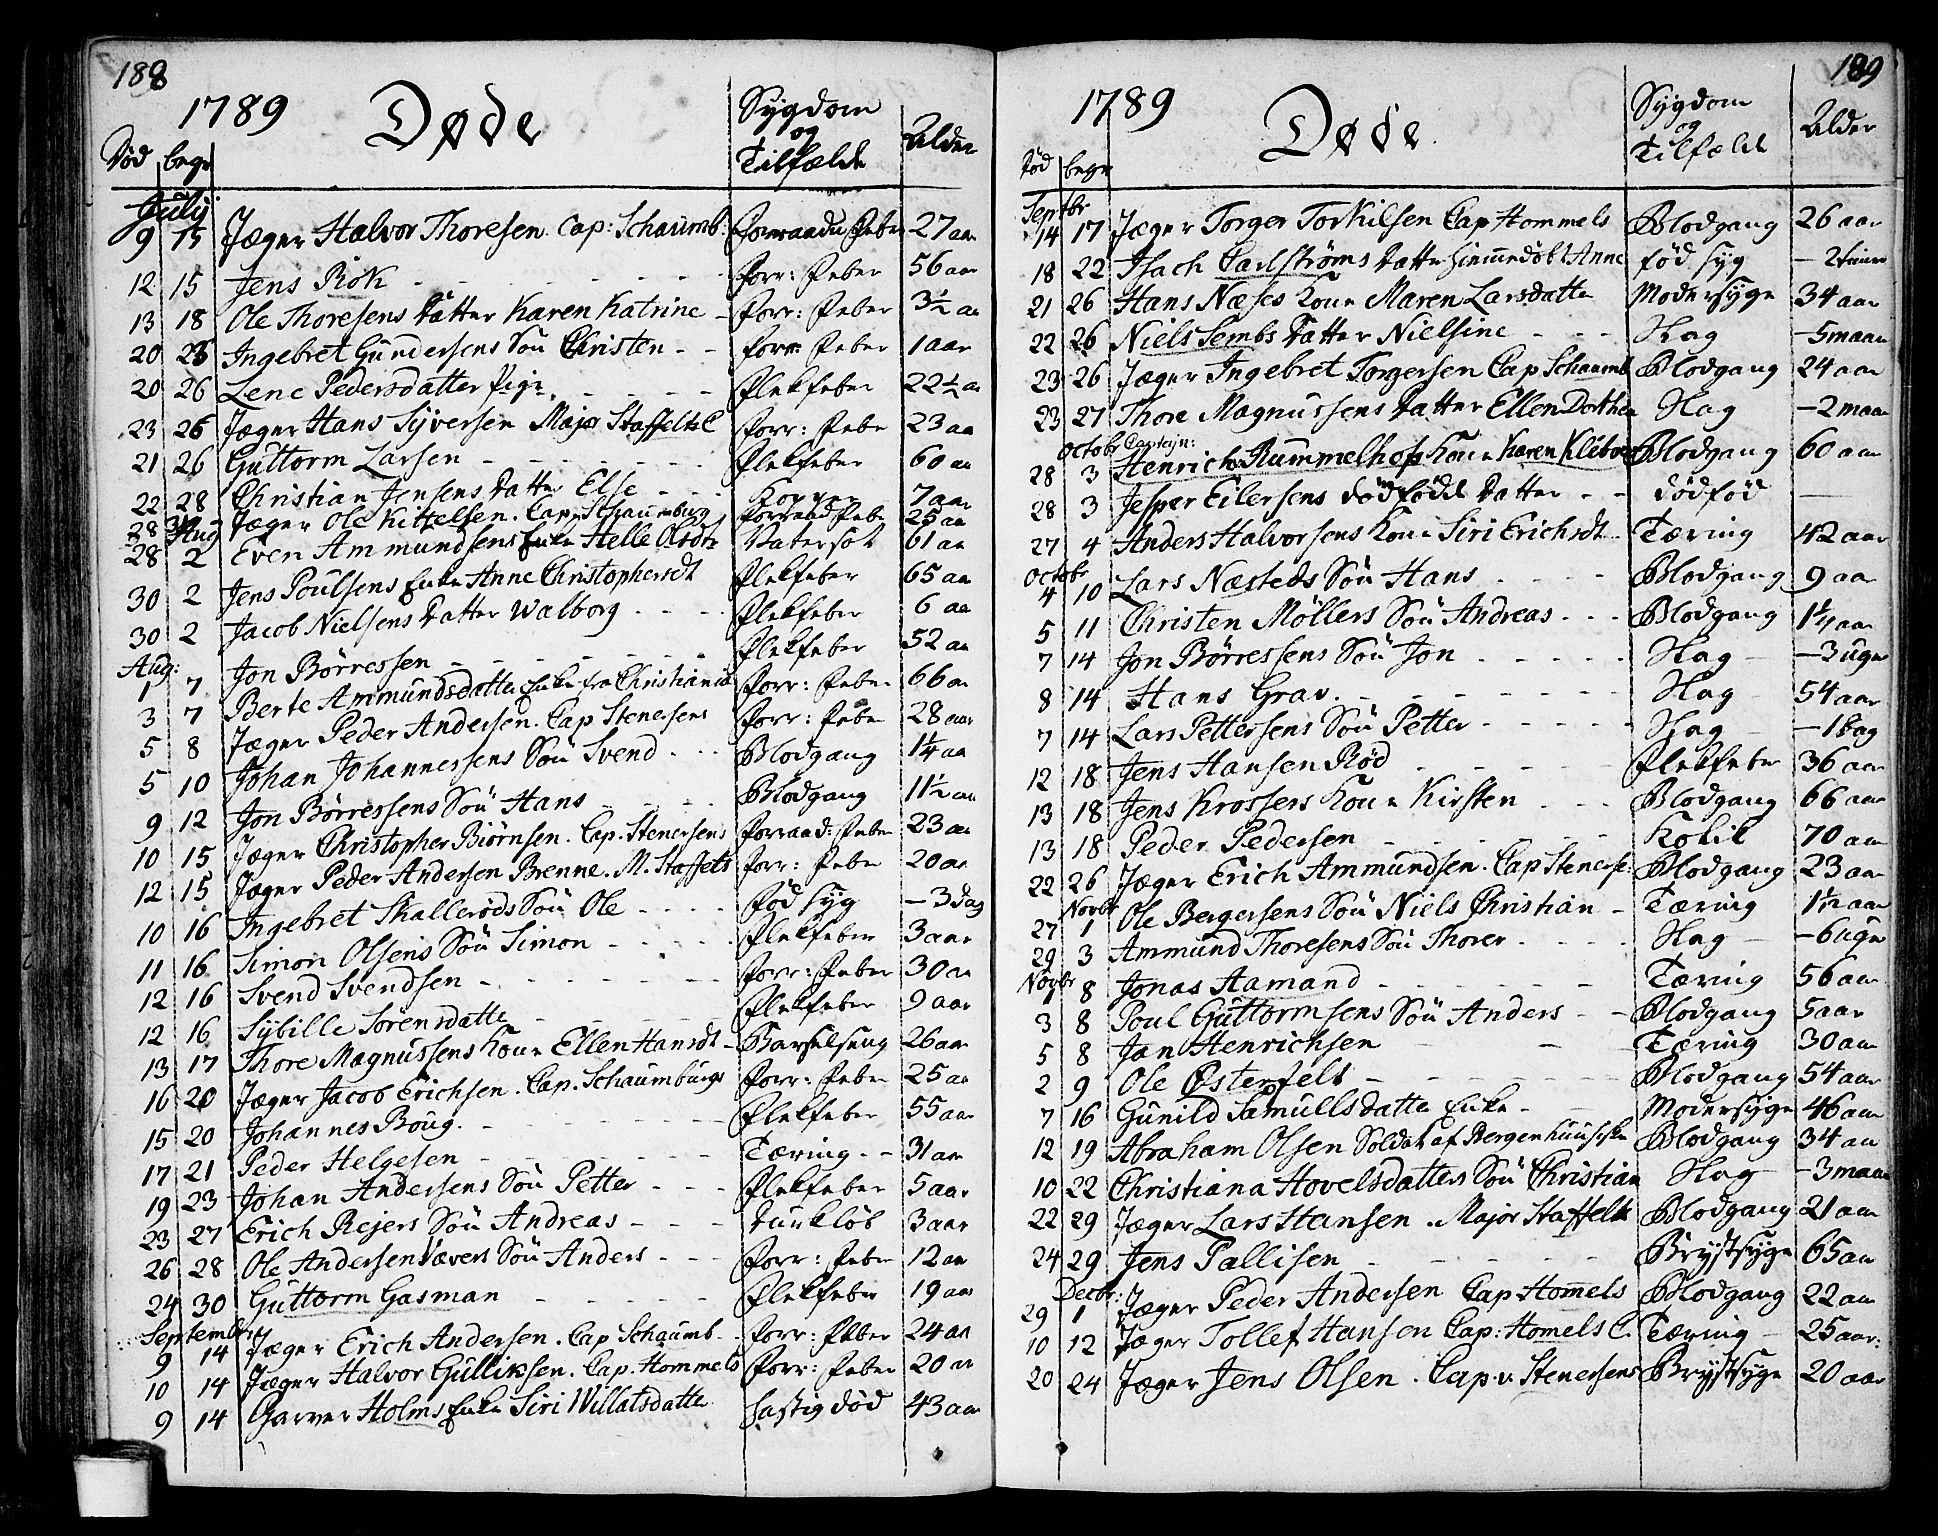 188
1789 Døde Sygdom og Tilfælde Alder
Død begr
July
9 15 Jæger Halvor Thoresen. Cap: Schaumb: Forraadn Feber 27 aar
12 15 Jens Bök - - - Forr: Feber 56 aar
13 18 Ole Thoresens Datter Karen Katrine - Forr: Feber 3½ aar
20 26 Ingebret Gundersens Søn Christen - - Forr Feber 1 aar
20 26 Lene Pedersdatter Pige - - - Flekfeber 22½ aar
23 26 Jæger Hans Syversen Major Staffelts C Forr: Feber 23 aar
21 26 Guttorm Larsen - - - Flekfeber 60 aar
22 28 Christian Jensens Datter Else - - - Kopper 7 aar
28 Aug Jæger Ole Kittelsen. Cap: Schaumburg Forraad Feber 25 aar
28 2 Even Ammundsens Enke Helle Olsdtr Vatersot 61 aar
30 2 Jens Poulsens Enke Anne Christophersdt Flekfeber 65 aar
30 2 Jacob Nielsens Datter Walborg - - - Flekfeber 6 aar
Aug:
1 7 Jon Börressen - - - Flekfeber 52 aar
3 7 Berte Ammundsdatter Enke fra Christiania Forr: Feber 66 aar
5 8 Jæger Peder Andersen. Cap Stenersens Forr: Feber 28 aar
5 10 Johan Johannessens Søn Svend - - - Blodgang 1¼ aar
9 12 Jon Börressens Søn Hans - - - Blodgang 11½ aar
10 15 Jæger Christopher Biørnsen. Cap: Stenersens Forraad: Feber 23 aar
12 15 Jæger Peder Andersen Brenne. M. Staffelts Forr: Feber 20 aar
10 16 Ingebret Skallerøds Søn Ole - - - Fød syg - 3 dag
11 16 Simon Olsens Søn Simon - - - Flekfeber 3 aar
12 16 Svend Svendsen - - - Forr: Feber 30 aar
12 16 Sybille Sörensdatter - - - Flekfeber 9 aar
13 17 Thore Magnussens Kone Ellen Hansdt - Barselseng 26 aar
16 20 Jæger Jacob Erichsen. Cap. Schaumburgs Forr: Feber 25 aar
15 20 Johannes Boug. - - - Flekfeber 55 aar
17 21 Peder Helgesen - - - Tæring - - 31 aar
19 23 Johan Andersens Søn Petter - - - Flekfeber 5 aar
23 27 Erich Rejers Søn Andreas - - - Durkløb 3 aar
26 28 Ole Andersen Vævers Søn Anders - - - Forr: Feber 12 aar
24 30 Guttorm Gasman - - - Flekfeber 19 aar
September
9 14 Jæger Erich Andersen. Cap Schaumb - Forr: Feber 24 aar
10 14 Jæger Halvor Gulliksen. Cap. Hommels Forr: Feber 20 aar
9 14 Garver Holms Enke Siri Willatsdatter hastig død 43 aar
189
1789 Døde. Sygdom og Tilfælde Alder
Død begr
Septbr
14 17 Jæger Torger Torkilsen Cap Hommels Blodgang 26 aar
18 22 Isach Carlströms Datter hiemmedøbt Anne fød syg - 2 timer
21 26 Hans Næses Kone Maren Larsdatter Modersyge 34 aar
22 26 Niels Sembs Datter Nielsine - - - Slag - 5 maan
23 26 Jæger Ingebret Torgersen Cap Schaumb Blodgang 24 aar
23 27 Thore Magnussens Datter Ellen Dorthea Slag - 2 maan
Octobr Captejn:
28 3 Henrich Rummelhofs Kone Karen Kliboe Blodgang 60 aar
28 3 Jesper Eilersens dødfødt Datter - - dødfød -
27 4 Anders Halvorsens Kone Siri Erichsdt. Tæring 42 aar
Octobr
4 10 Lars Næsteds Søn Hans - - - Blodgang 9 aar
5 11 Christen Möllers Søn Andreas - - - Blodgang 1¼ aar
7 14 Jon Börressens Søn Jon - - - Slag - - 3 uger
8 14 Hans Grav. - - - Slag - 54 aar
7 14 Lars Pettersens Søn Petter - - - Slag - - 1 dag
12 18 Jens Hansen Rød - - - Flekfeber 36 aar
13 18 Jens Krossers Kone Kirsten - - - Blodgang 66 aar
13 18 Peder Pedersen - - - Kolik 70 aar
22 26 Jæger Erich Ammundsen. Cap Stenerse: Blodgang 23 aar
Novbr
27 1 Ole Bergersens Søn Niels Christian - Tæring 1½ aar
29 3 Ammund Thoresens Søn Thorer - - - Slag - - 6 uger
Novbr
1 8 Jonas Aamand - - - Tæring 56 aar
3 8 Poul Guttormsens Søn Anders - - Blodgang 5 aar
5 8 Jan Henrichsen - - - Tæring 30 aar
2 9 Ole Østerfelt - - - Blodgang 54 aar
7 16 Gunild Samullsdatter Enke - - - Modersyge 46 aar
12 19 Abraham Olsen Soldat af Bergenhuusiske Blodgang 34 aar
10 22 Christiana Hovelsdatters Søn Christian Slag - 3 maan
22 29 Jæger Lars Hansen. Major Staffelts Blodgang 21 aar
24 29 Jens Pallisen - - - Brystsyge 65 aar
Decbr:
29 1 Jæger Peder Andersen Cap Homels Blodgang 22 aar
10 12 Jæger Tollef Hansen Cap: Homels C. Tæring - 25 aar:
20 24 Jæger Jens Olsen. Cap. v Stenersens Brystsyge 20 aar